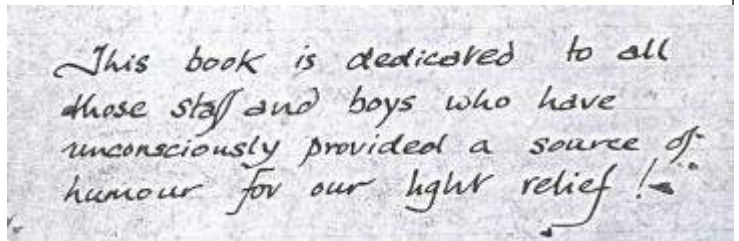 This book is dedicated to all
those staff and boys who have
unconsciously provided a source of
humour for our light relief !